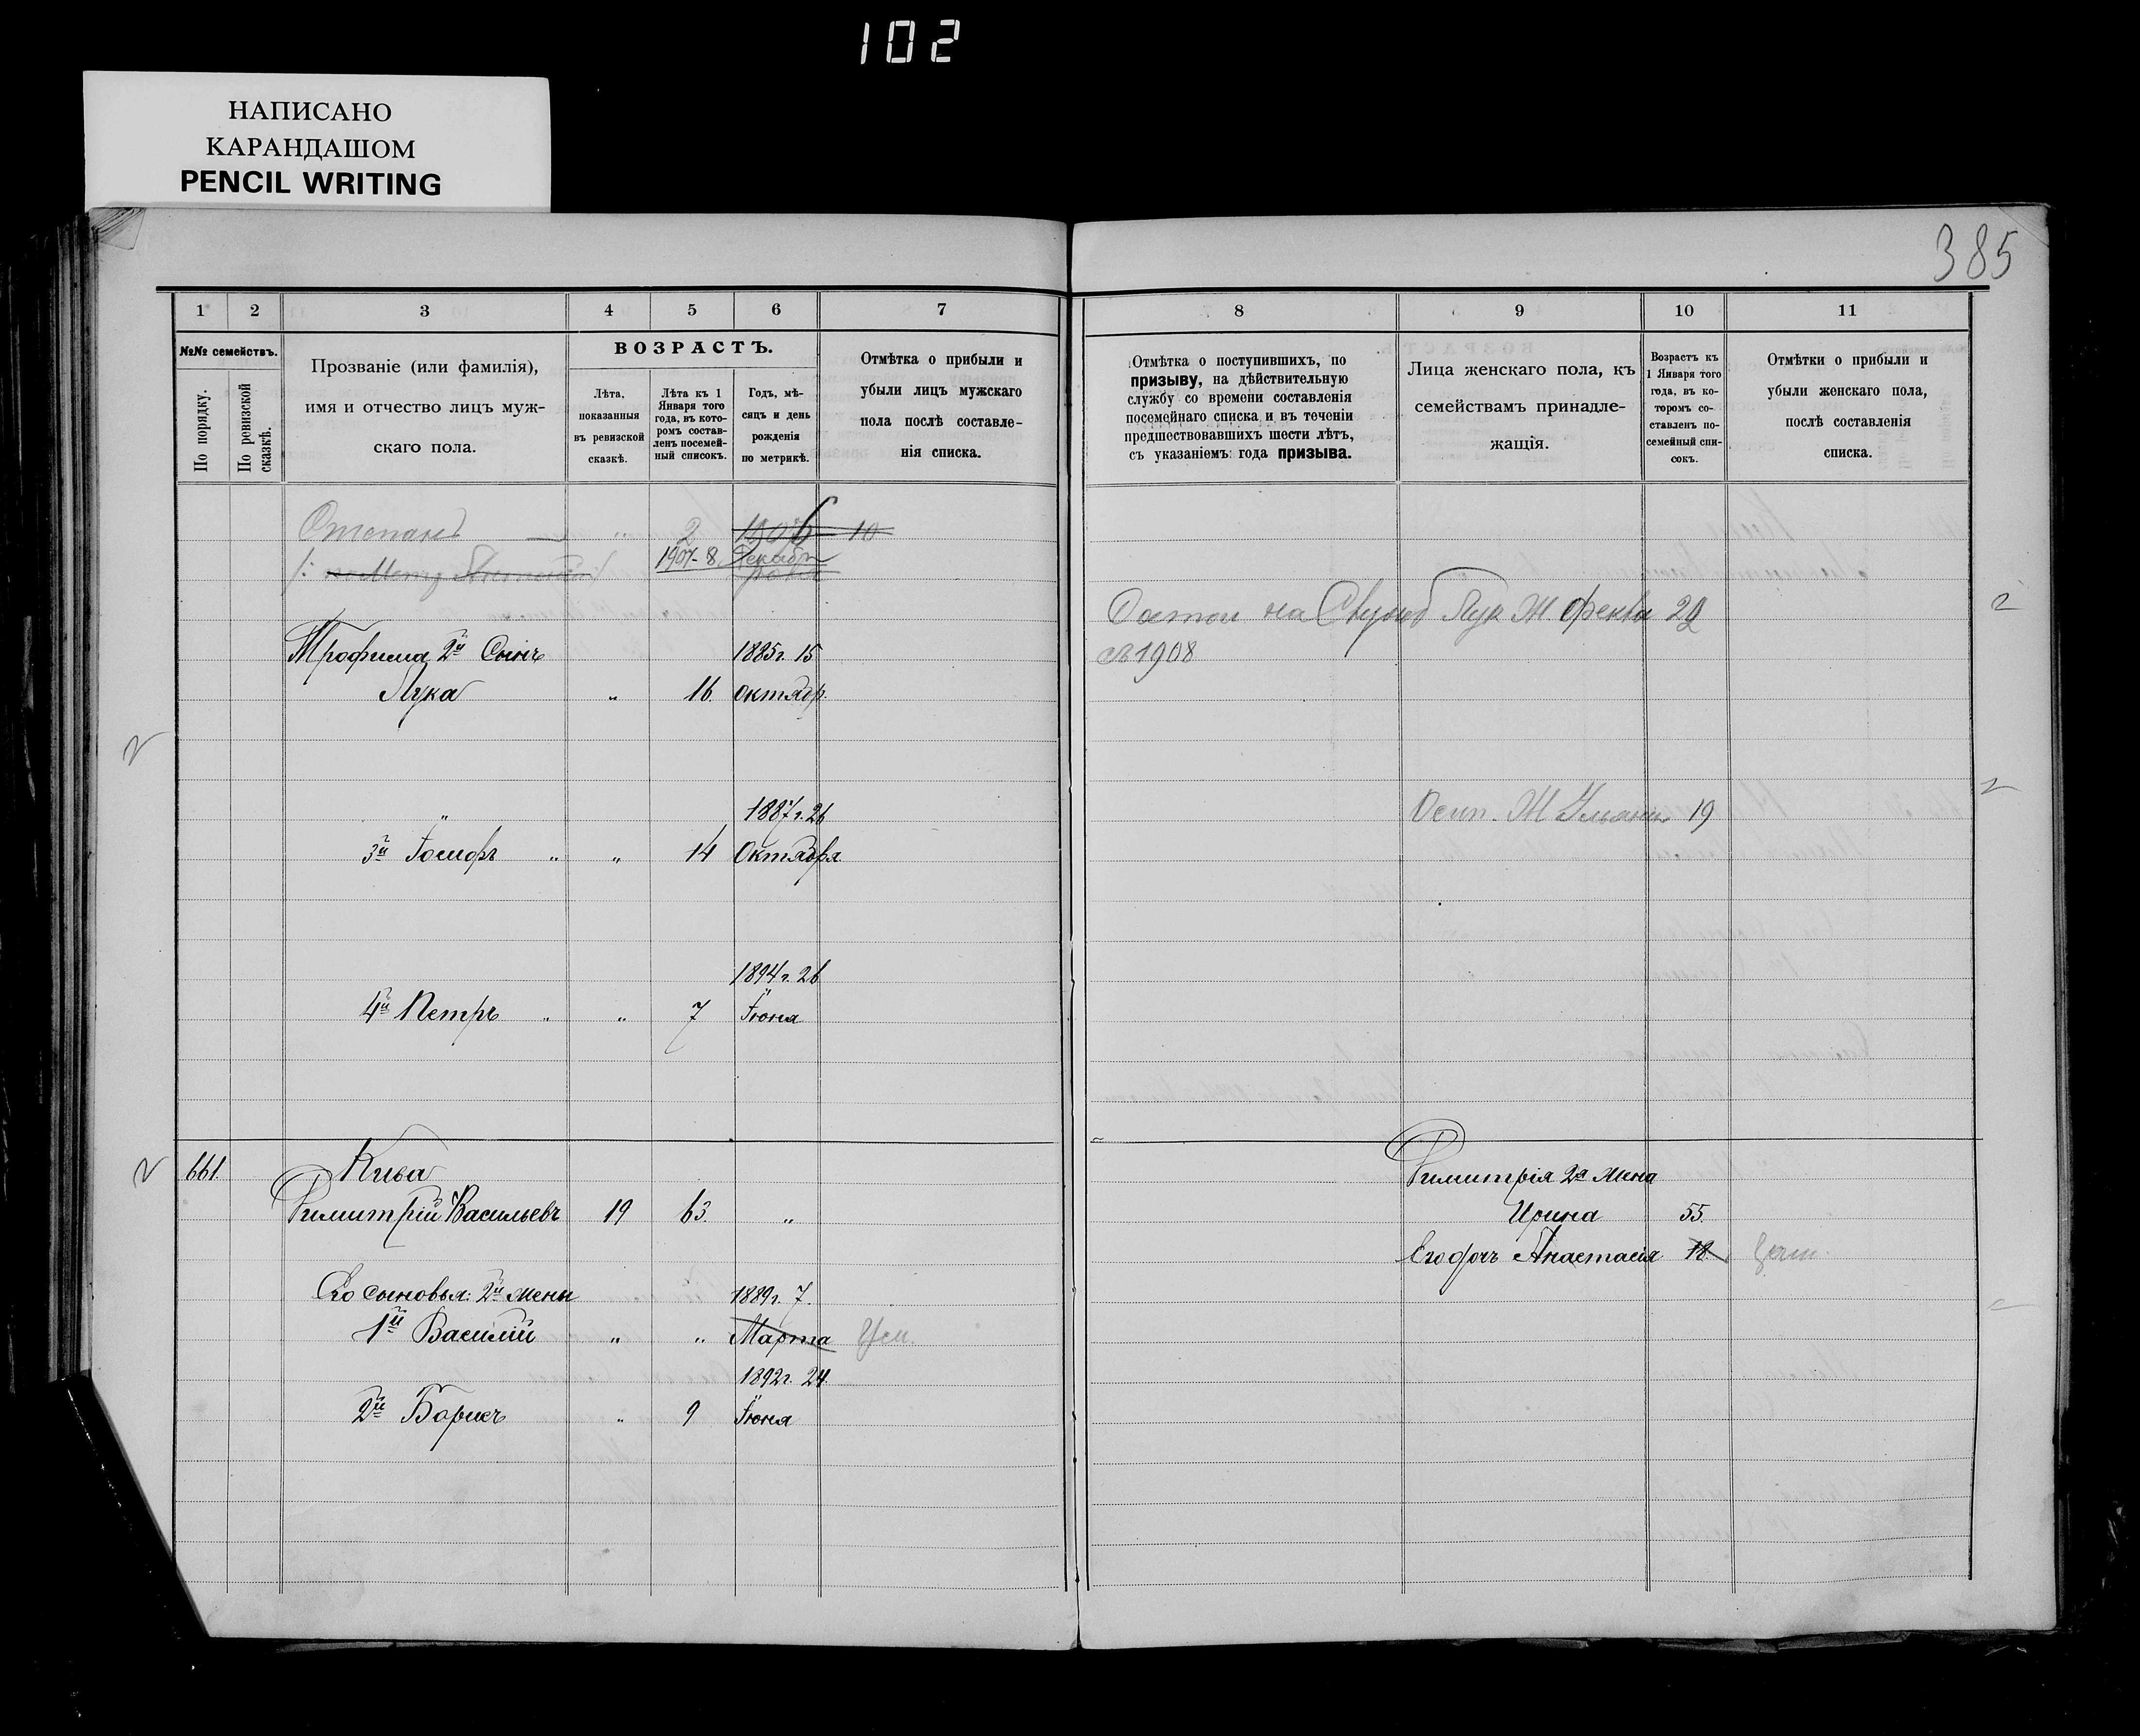 102
НАПИСАНО
КАРАНДАШОМ
PENCIL WRITING
385
1 2 3 4 5 6 7 8 9 10 11
№№ семействъ.
По порядку.
По ревизской сказкѣ.
Прозваніе (или фамилія),
имя и отчество лицъ муж-
скаго пола.
ВОЗРАСТЪ.
Лѣта,
показанныя
въ ревизской
сказкѣ.
Лѣта къ 1
Января того
года, въ кото-
ромъ состав-
ленъ посемей-
ный списокъ.
Годъ, мѣ-
сяцъ и день
рожденія
по метрикѣ.
Отмѣтка о прибыли и
убыли лицъ мужскаго
пола послѣ составле-
нія списка.
Отмѣтка о поступившихъ, по
призыву, на дѣйствительную
службу со времени составленія
посемейнаго списка и въ теченіи
предшествовавшихъ шести лѣтъ,
съ указаніемъ года призыва.
Лица женскаго пола, къ
семействамъ принадле-
жащія.
Возрастъ къ
1 Января того
года, въ ко-
торомъ со-
ставленъ по-
семейный спи-
сокъ.
Отмѣтки о прибыли и
убыли женскаго пола,
послѣ составленія
списка.
Степанъ " 2 1906 10
1907-8 Декабр
на Лук Ж. Фекла 22
Трофима 2й Сынъ 1885г. 15
съ 1908
Лука " 16. Октябр.
" 1887г. 26
Осип. Ж Ульяна 19
3й Іосифъ " " 14 Октября
1894г. 26
4й Петръ " " 7 Іюня
661. Кива
Димитрія 2я Жена
Димитрій Васильевъ 19 63. "
Ирина 55.
Его дочь Анастасія 18.
Его сыновья: 2й жены 1889г. 7.
1й Василій " " Марта Ум.
1892г. 24.
2й Борисъ " 9 Іюня